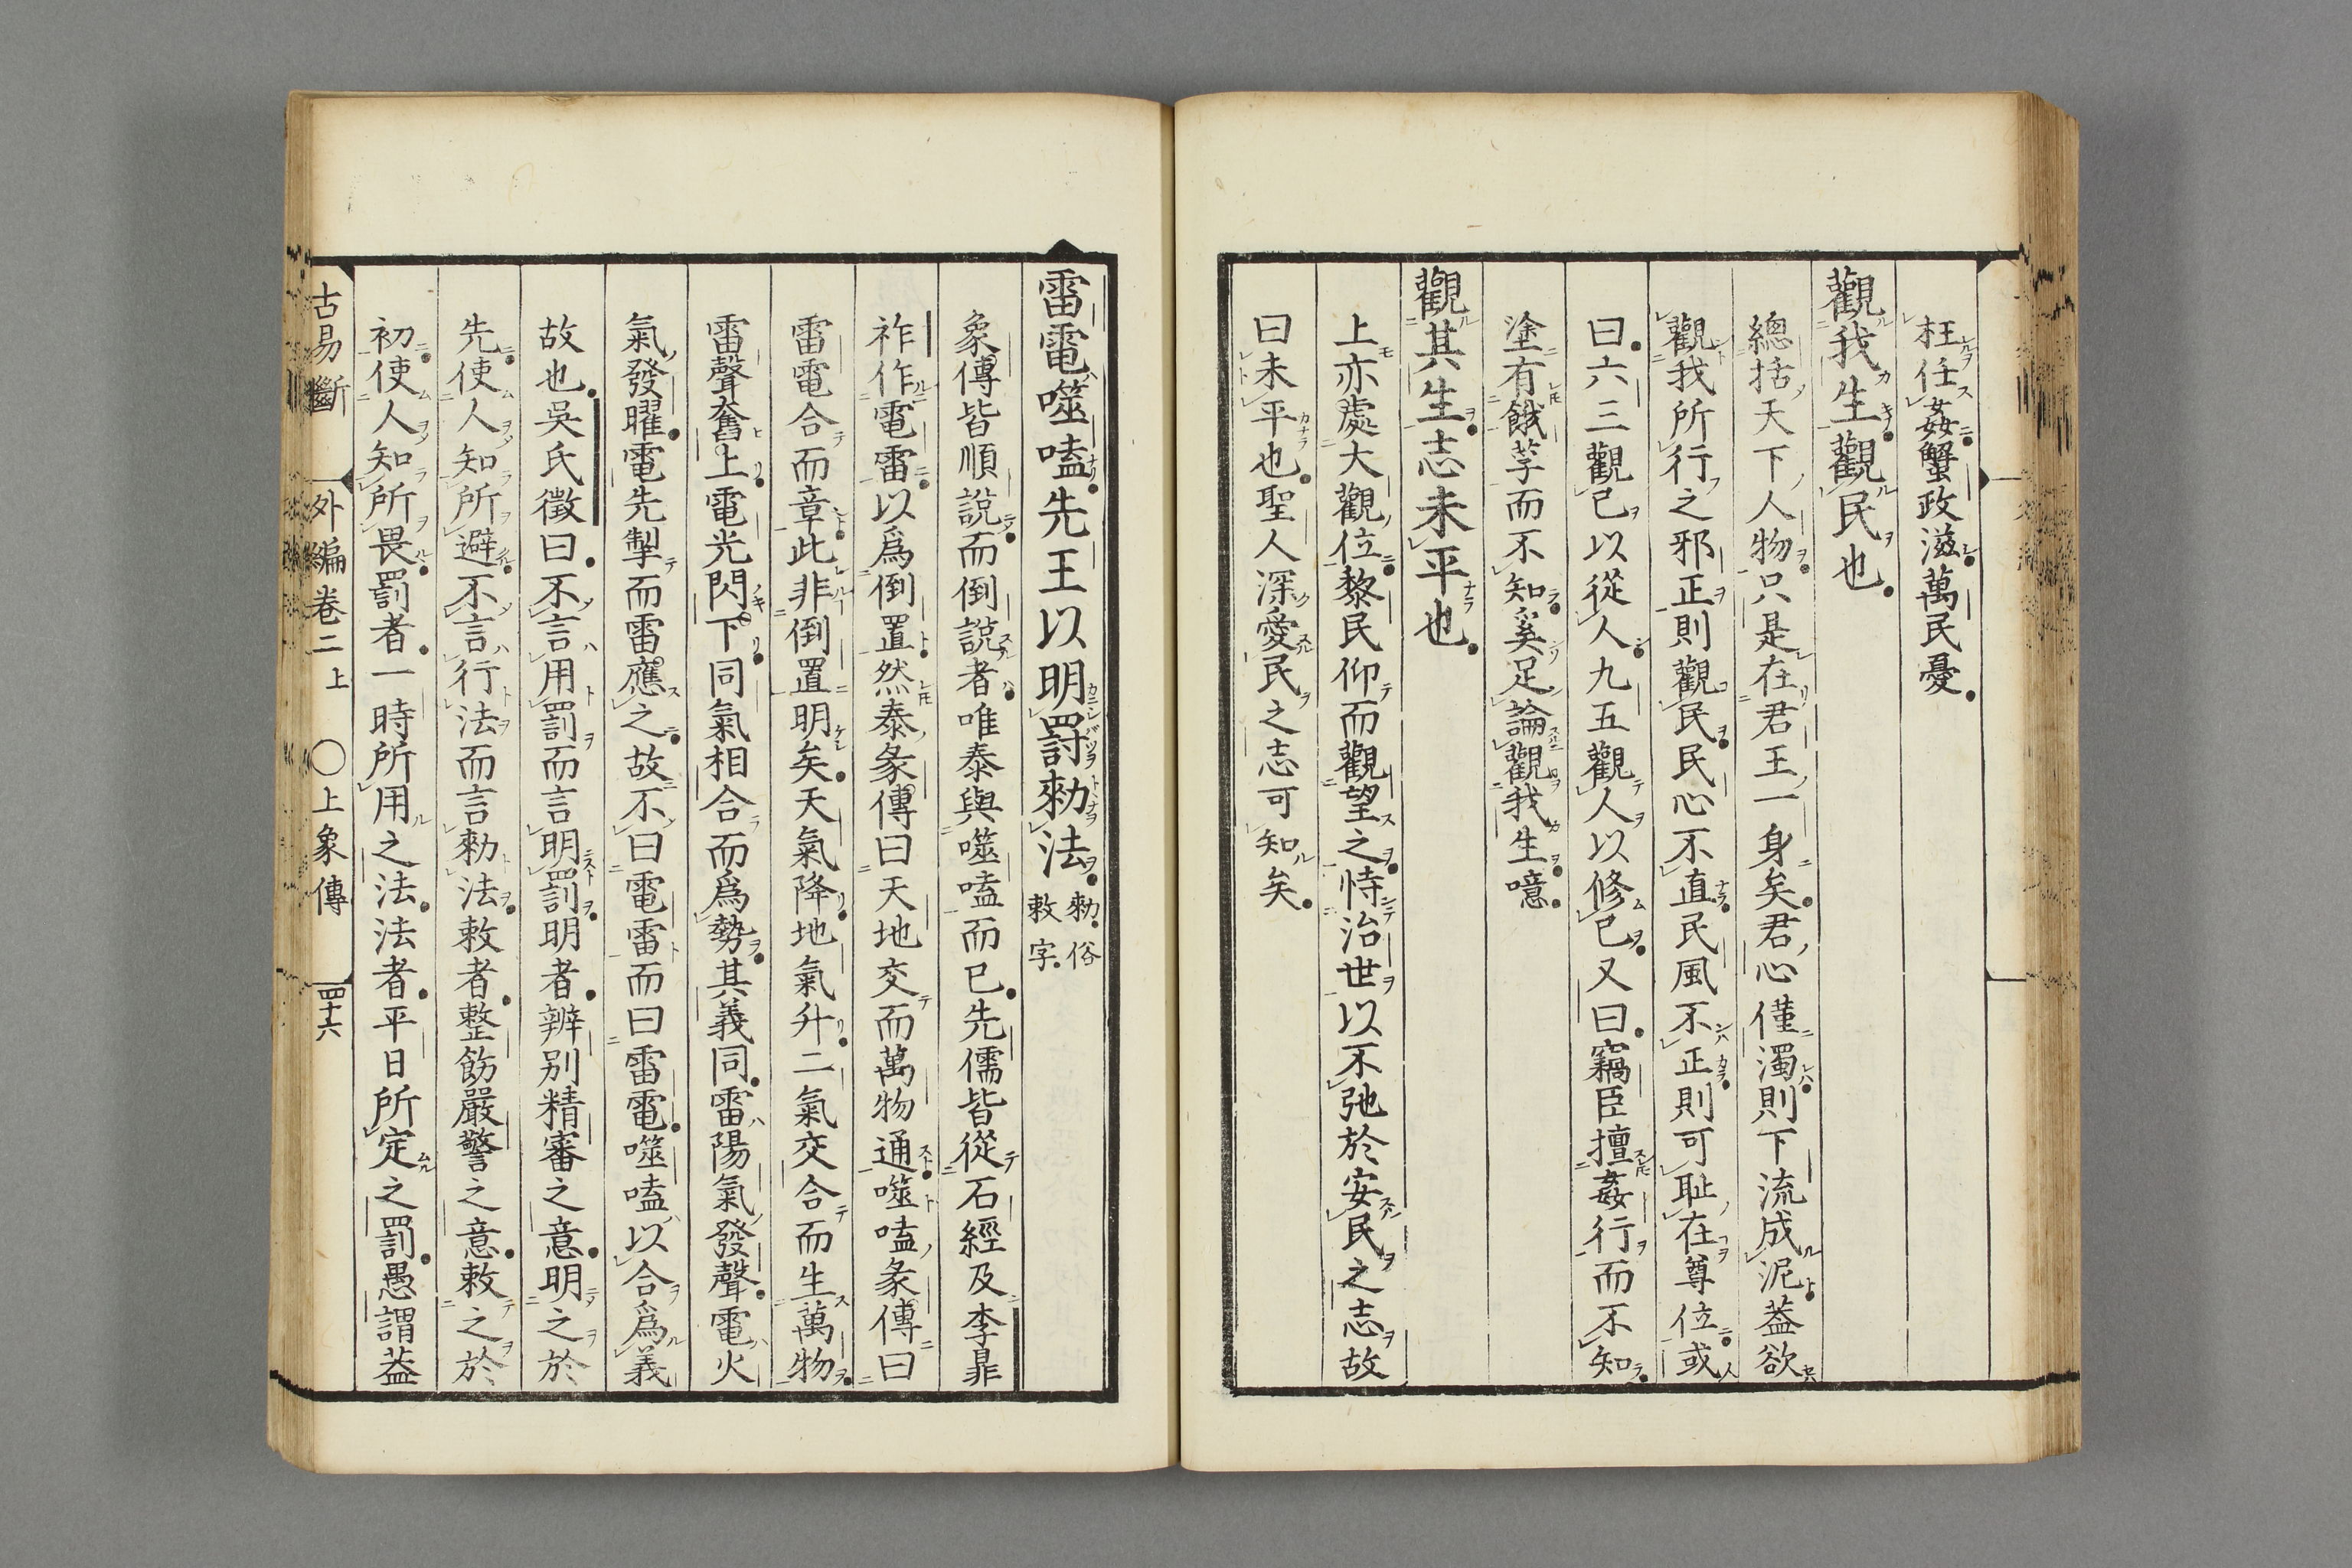 枉任姦蟹政滋萬民憂
觀我生觀民也
總括天下人物只是在君王一身矣君心僅濁則下流成泥蓋欲
觀我所行之邪正則觀民民心不直民風不正則可耻在尊位或
曰六三觀已以從人九五觀人以修已又曰竊臣擅姦行而不知
塗有餓莩而不知奚足論觀我生噫
觀其生志未平也
上亦處大觀位黎民仰而觀望之恃治世以不弛於安民之志故
曰未平也聖人深愛民之志可知矣
雷電噬嗑先王以明罰勑法勑俗敕字
象傳皆順說而倒說者唯泰與噬嗑而已先儒皆從石經及李鼎
祚作電雷以爲倒置然泰彖傳曰天地交而萬物通噬嗑彖傳曰
雷電合而章此非倒置明矣天氣降地氣升二氣交合而生萬物
雷聲奮上電光閃下同氣相合而爲勢其義同雷陽氣發聲電火
氣發曜電先掣而雷應之故不曰電雷而曰雷電噬嗑以合爲義
故也吳氏徵曰不言用罰而言明罰明者辨別精審之意明之於
先使人知所避不言行法而言勑法敕者整飭嚴警之意敕之於
初使人知所畏罰者一時所用之法法者平日所定之罰愚謂蓋
古易斷 外編卷二上 〇上象傳 四十六